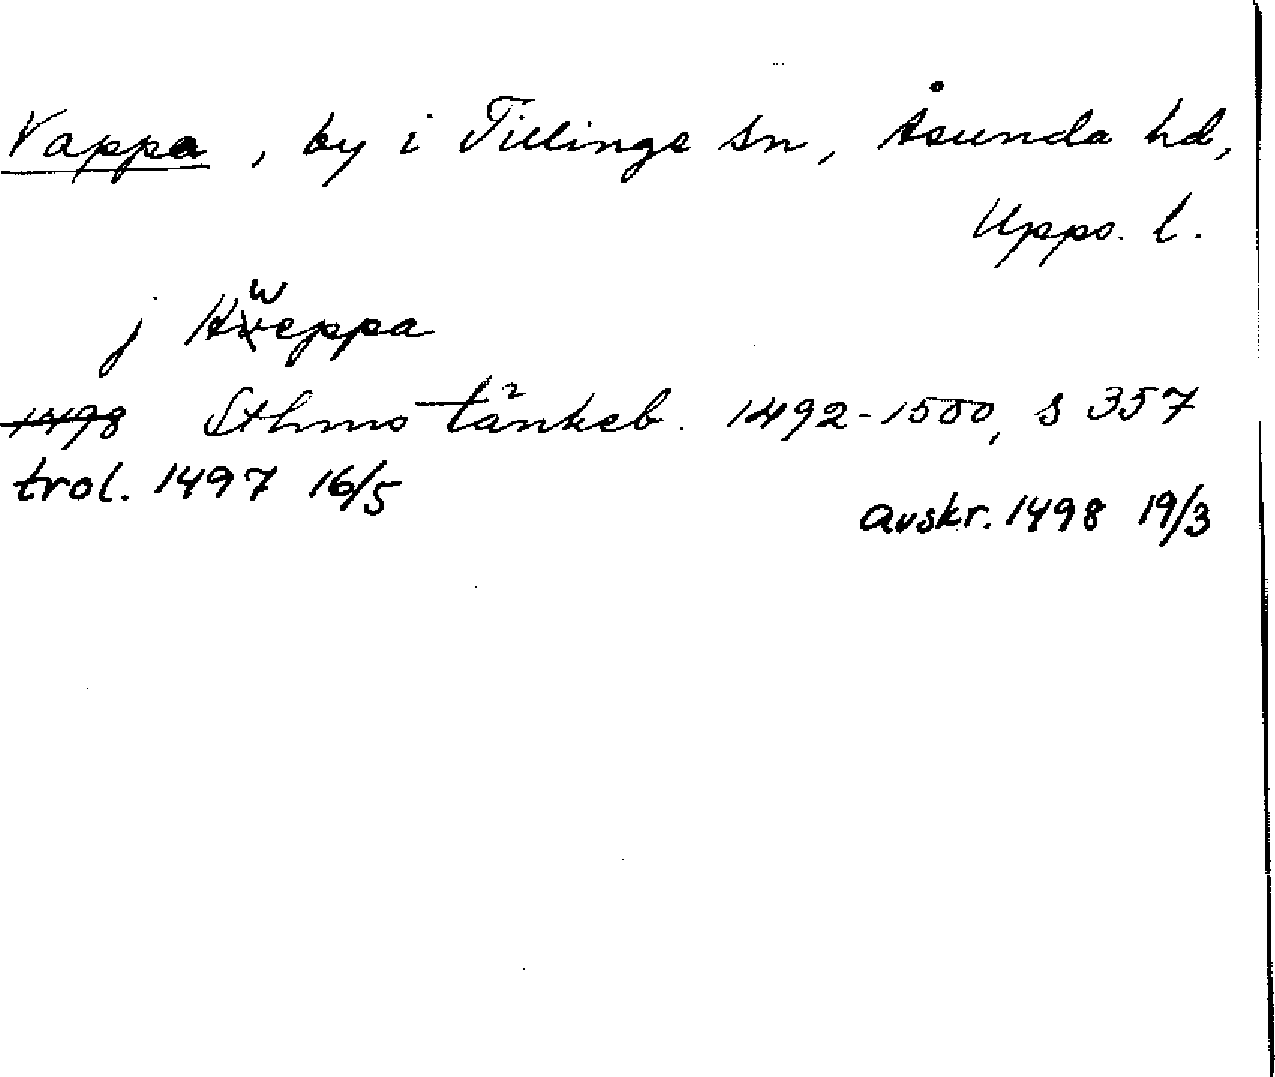 Vappa, by i Tillinge sn, Åsunda hd,
Upps. l.
j Hweppa
1498 Sthms tänkeb. 1492-1500, s 357
trol. 1497 16/5
avskr. 1498 19/3